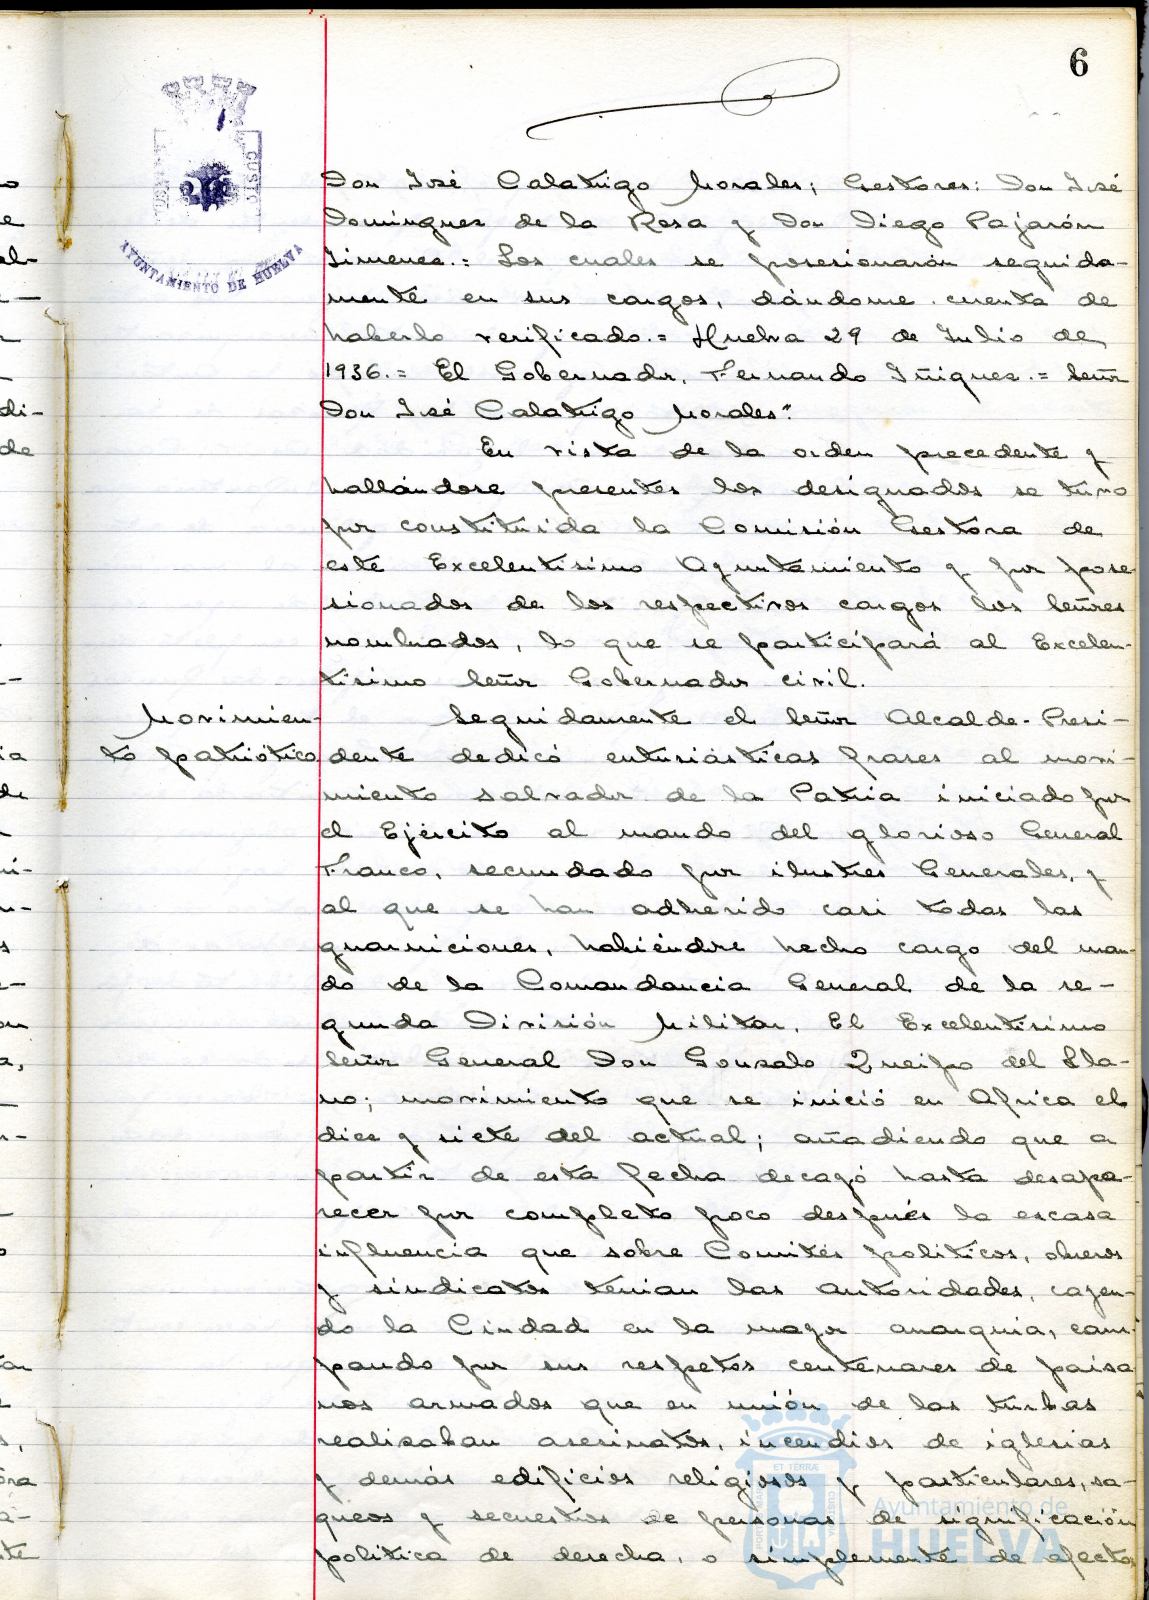 6
AYUNTAMIENTO DE HUELVA
Don José Calatrigo Morales; Gestores: Don José
Domínguez de la Rosa y Don Diego Pajarón
Jimenez.= Los cuales se posesionarón seguida-
mente en sus cargos, dándome cuenta de
haberlo verificado.= Huelva 29 de Julio de
1936.= El Gobernador, Fernando Iñiguez.= Señor
Don José Calatrigo Morales".
En vista de la orden precedente y
hallándose presentes los designados se tuvo
por constituida la Comisión Gestora de
este Excelentísimo Ayuntamiento y por pose
sionados de los respectivos cargos los Señores
nombrados, lo que se participará al Excelen-
tísimo Señor Gobernador civil.
Movimien-
to patriótico
Seguidamente el Señor Alcalde-Presi-
dente dedicó entusiásticas frases al movi-
miento salvador de la Patria iniciado por
el Ejército al mando del glorioso General
Franco, secundado por ilustres Generales, y
al que se han adherido casi todas las
guarniciones, habiéndose hecho cargo del man-
do de la Comandancia General de la se-
gunda División Militar, El Excelentísimo
Señor General Don Gonzalo Queipo del Lla-
no; movimiento que se inició en Africa el
diez y siete del actual; añadiendo que a
partir de esta fecha decayó hasta desapa-
recer por completo poco después la escasa
influencia que sobre Comités políticos, obreros
y sindicatos tenian las autoridades, cayen-
do la Ciudad en la mayor anarquia, cam-
pando por sus respetos centenares de paisa
nos armados que en unión de las turbas
realizaban asesinatos, incendios de iglesias
y demás edificios religiosos y particulares, sa-
queos y secuestros de personas de significación
politica de derecha, o simplemente de afecto
ET TERRÆ
CUSTODIA
Ayuntamiento de
HUELVA